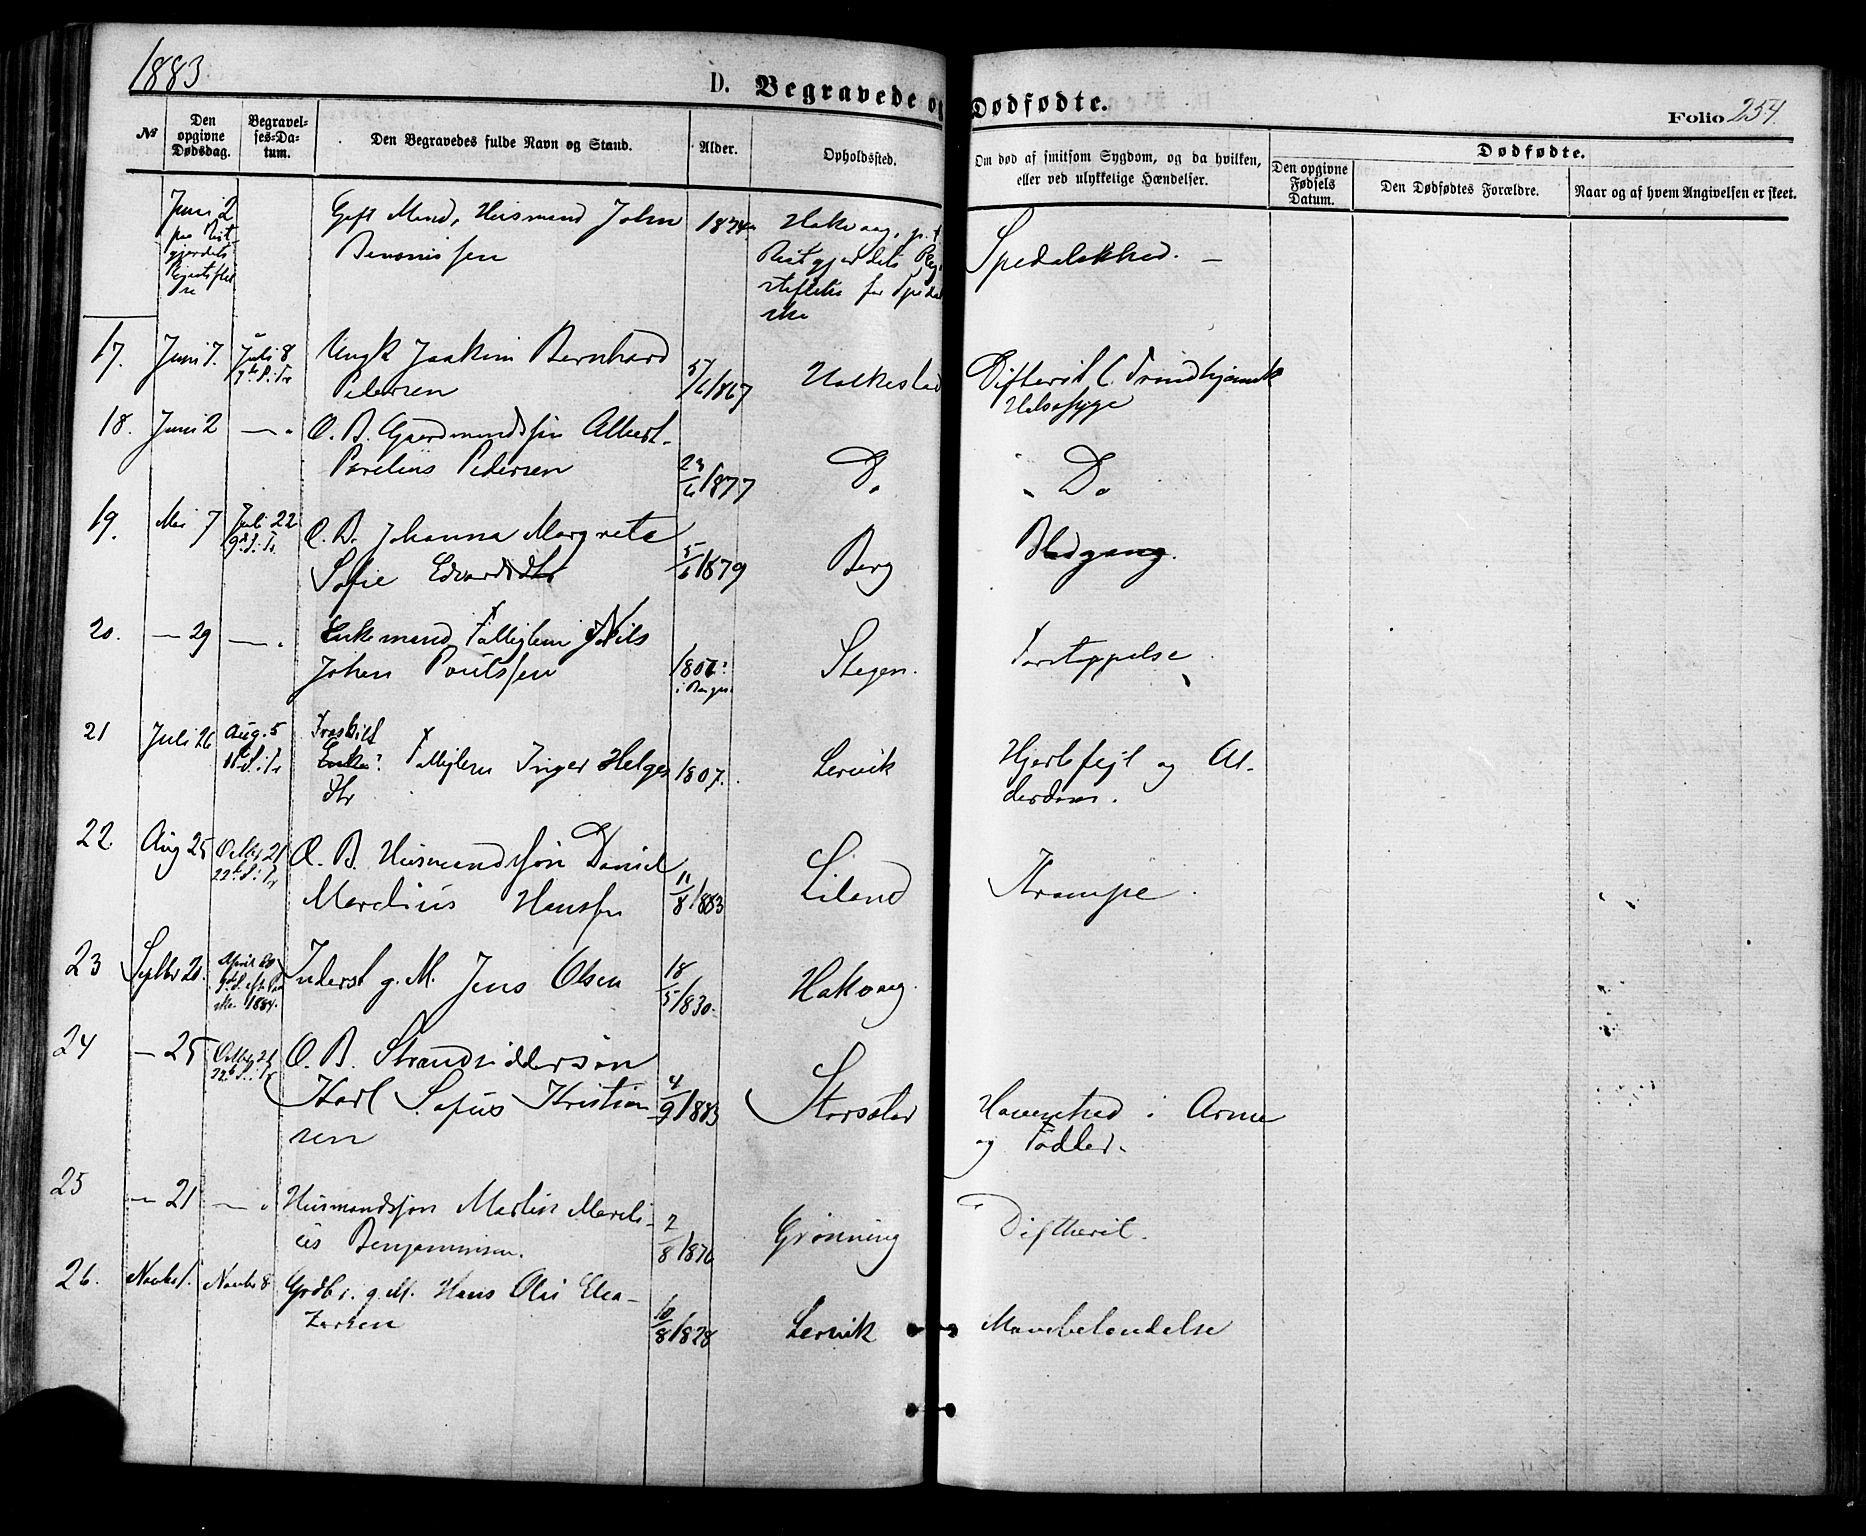 1883
D. Begravede og Dødfødte.
Folio 254.
№
Den opgivne Dødsdag.
Begravelses-Datum.
Den Begravedes fulde Navn og Stand.
Alder.
Opholdssted.
Om død af smitsom Sygdom, og da hvilken,
eller ved ulykkelige Hændelser.
Dødfødte.
Den opgivne Fødsels Datum.
Den Dødfødtes Forældre.
Naar og af hvem Angivelsen er skeet.
Juni 2 Gift Mand, Husmand John 1824 Hakvaag, p.t.
Reitgjerdets Spedalskhed. —
17. Juni 7. Juli 8 Ungk Joakim Bernhard
Pedersen 5/6 1867 Halkestad Difterit (Trondhjemsk
Halssyge
18. Juni 2 — " O. B. Gaardmandssøn Albert
Parelius Pedersen 23/6 1877 Do " Do
19. Mai 7 Juli 22 O. B. Johanna Margrete
9d S. i Tr. Sofie Edvardsdtr 5/6 1879 Berg Blodgang.
20. — 29 — " Enkemand, Fattiglem Nils
Johan Poulssen Stegen. Forstoppelse
21 Juli 26 Aug. 5 Fraskilt
Fattiglem Inger Helges 1807. Lervik Hjertefejl og Al-
dtr derdom.
22. Aug 25 Octbr 21 O. B. Husmandssøn Daniel
22d S. i Tr Marelius Hanssen 11/8 1883 Liland Krampe
23 Septbr 20. April 20 Inderst g. M. Jens Olsen 18/5 1830. Hakvaag.
1884.
24 — 25 Octbr 21 O. B. Strandsiddersøn
22d S. i Tr Karl Sofus Kristian 4/9 1883 Storstad Hovenhed i Arme
sen og Fødder.
25 — 21 — " Husmandssøn Martin Mareli-
us Benjaminsen. 2/8 1876 Grønning Diftherit.
26. Novbr 1. Novbr 8 Grdbr. g. M. Hans Olai Elea-
zersen 10/8 1828 Lervik Mavebetændelse